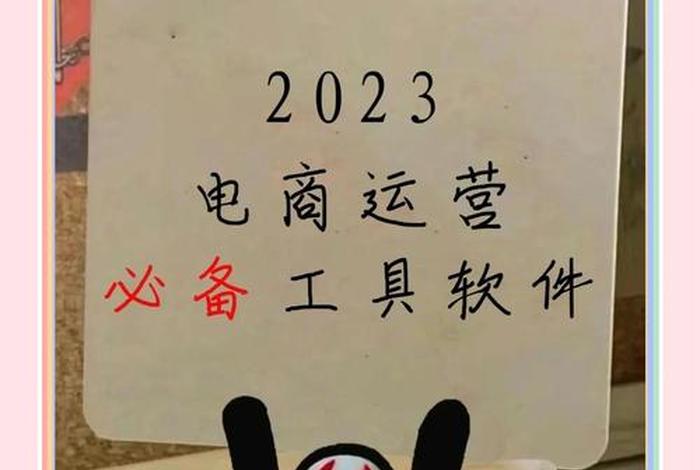 2023
电商运营
必备工具软件